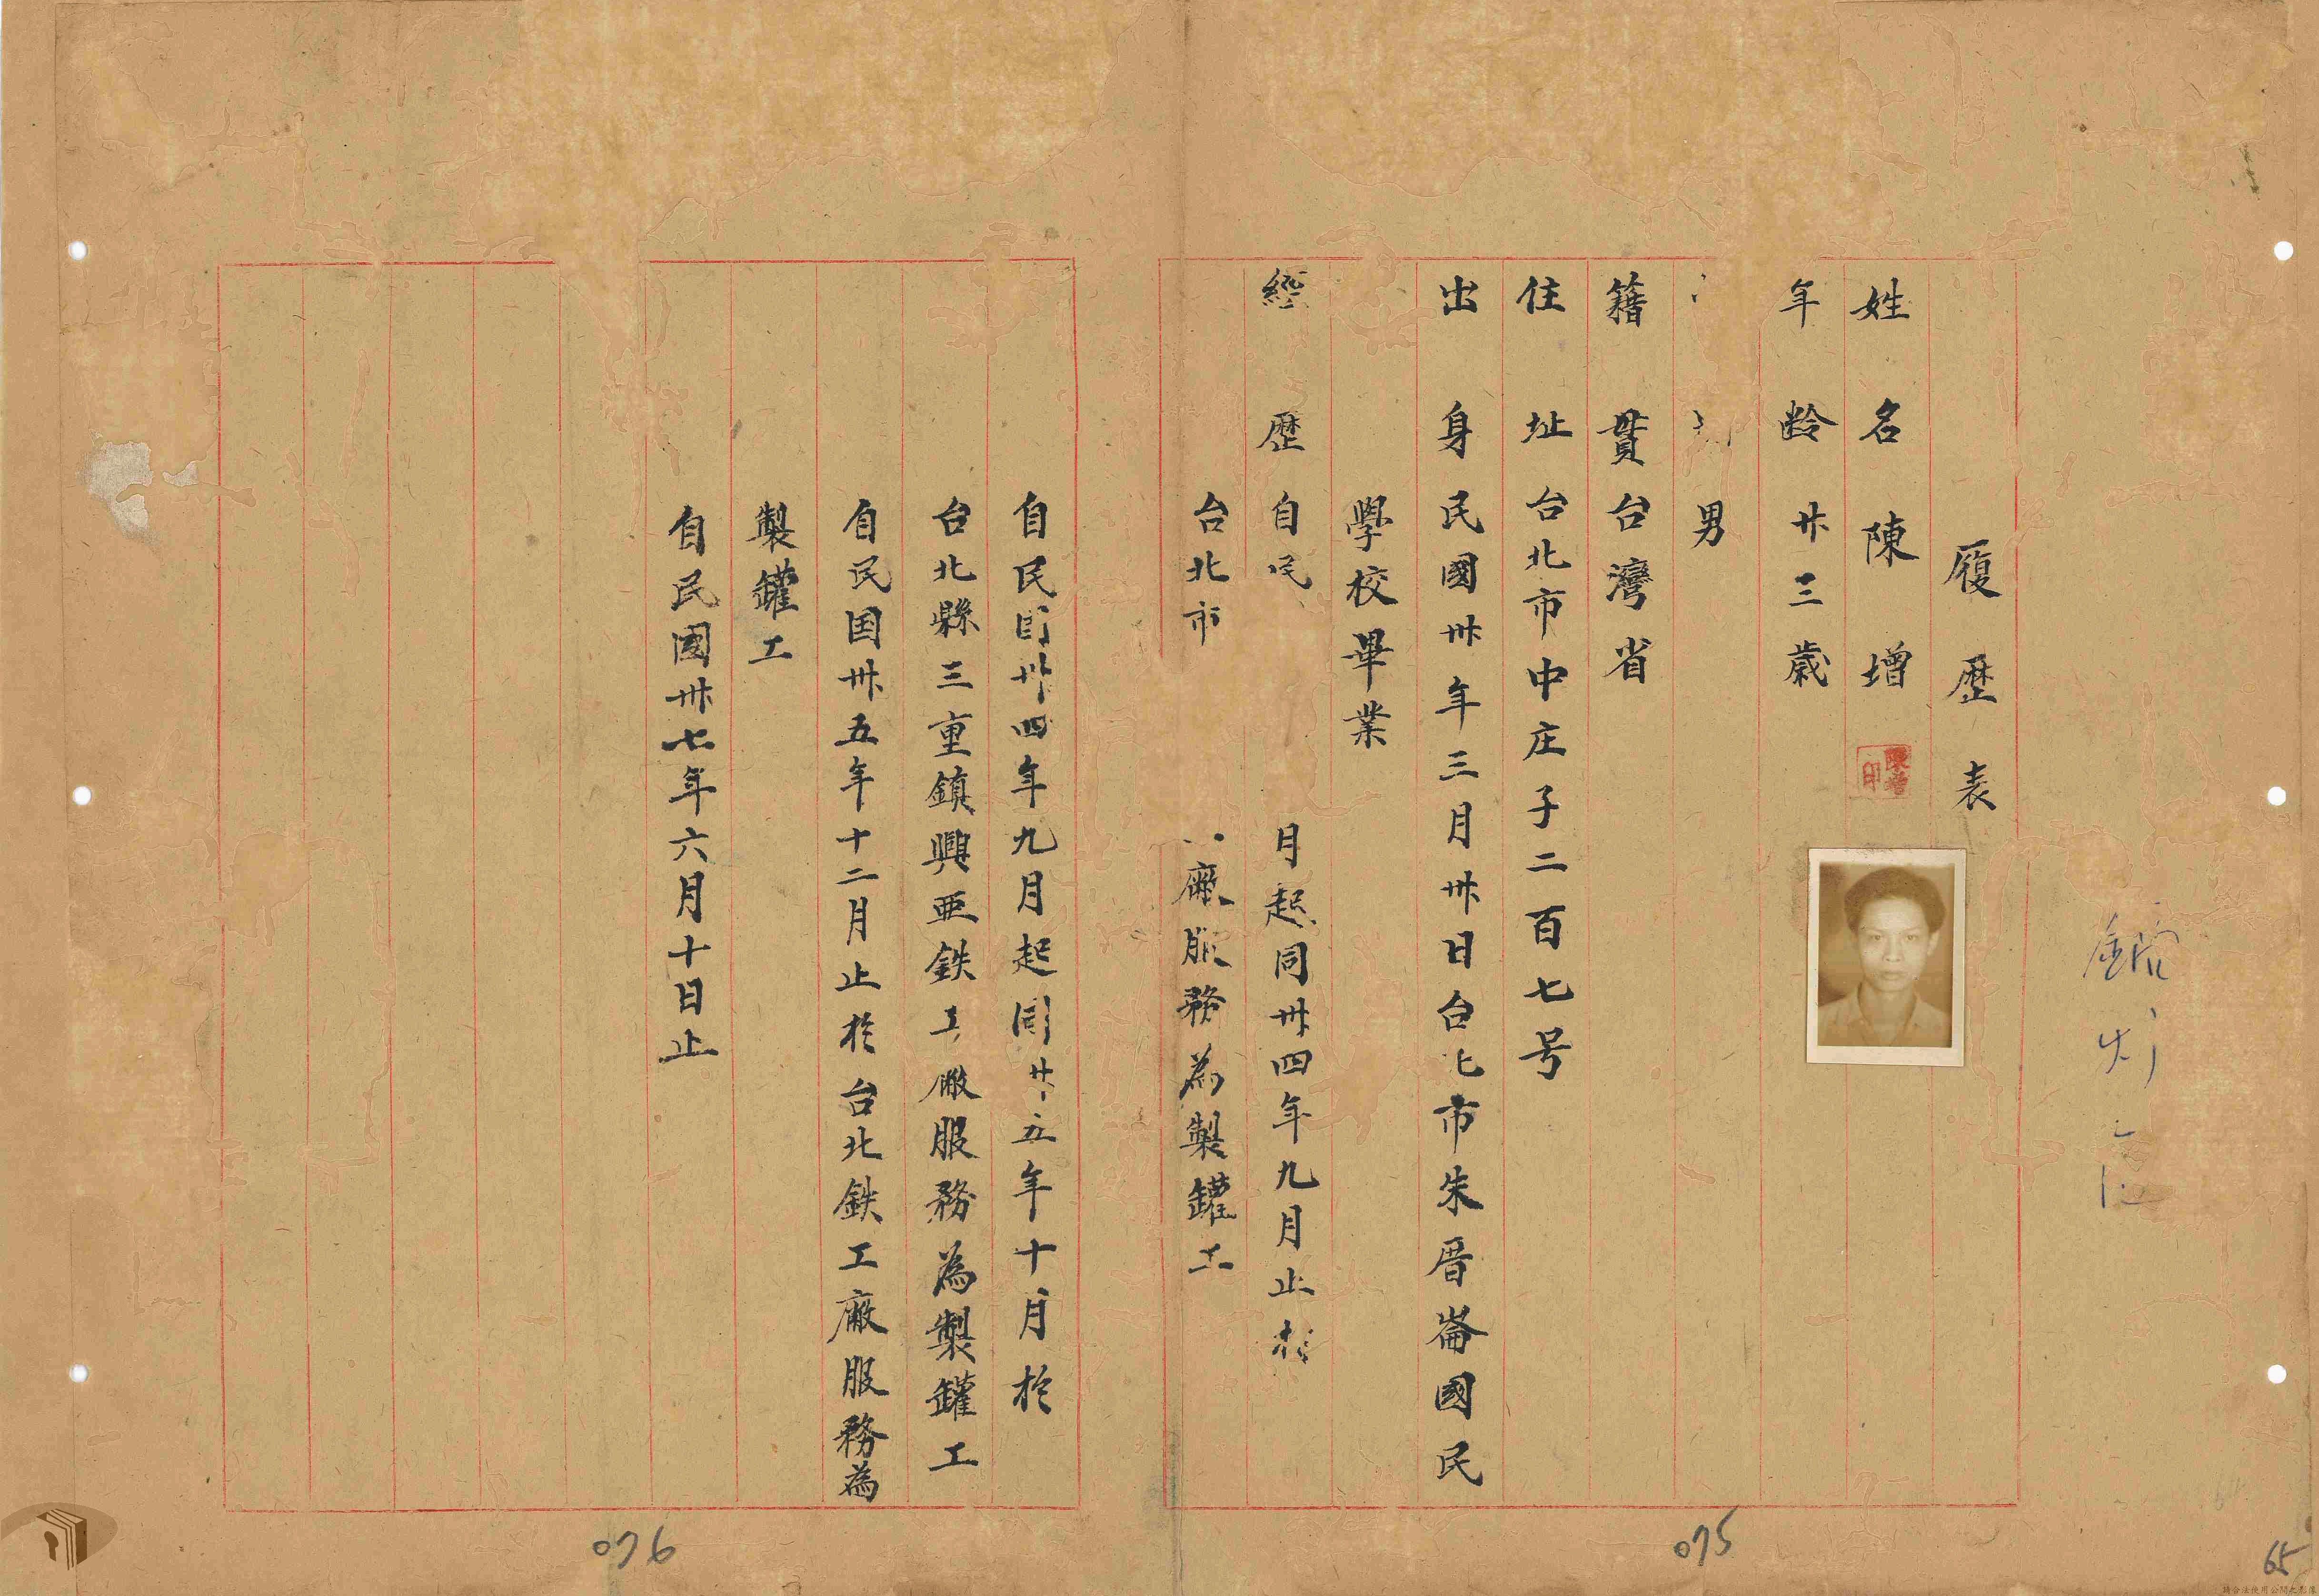 履歷表
姓名 陳增
陳增印
年齡 廿三歲
男
籍貫 台灣省
住址 台北市中庄子二百七号
出身 民國卅年三月卅日台北市朱厝崙國民
學校畢業
經歷 自民 月起同卅四年九月止於
台北市 廠服務為製罐工
自民國卅四年九月起同卅五年十月於
台北縣三重鎮興亜鉄工廠服務為製罐工
自民国卅五年十二月止於台北鉄工廠服務為
製罐工
自民國卅七年六月十日止
075
076
65